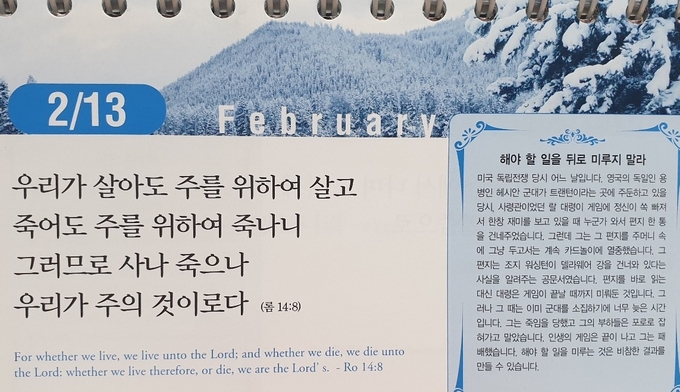 2/13
February
우리가 살아도 주를 위하여 살고
죽어도 주를 위하여 죽나니
그러므로 사나 죽으나
우리가 주의 것이로다 (롬 14:8)
For whether we live, we live unto the Lord; and whether we die, we die unto
the Lord: whether we live therefore, or die, we are the Lord's. - Ro 14:8
해야 할 일을 뒤로 미루지 말라
미국 독립전쟁 당시 어느 날입니다. 영국의 독일인 용
병인 헤시안 군대가 트랜턴이라는 곳에 주둔하고 있을
당시, 사령관이었던 랄 대령이 게임에 정신이 쏙 빠져
서 한창 재미를 보고 있을 때 누군가 와서 편지 한 통
을 건네주었습니다. 그런데 그는 그 편지를 주머니 속
에 그냥 두고서는 계속 카드놀이에 열중했습니다. 그
편지는 조지 워싱턴이 델라웨어 강을 건너와 있다는
사실을 알려주는 공문서였습니다. 편지를 바로 읽는
대신 대령은 게임이 끝날 때까지 미뤄둔 것입니다. 그
러나 그 때는 이미 군대를 소집하기에 너무 늦은 시간
입니다. 그는 죽임을 당했고 그의 부하들은 포로로 잡
혀가고 말았습니다. 인생의 게임은 끝이 나고 그는 패
배했습니다. 해야 할 일을 미루는 것은 비참한 결과를
만들 수 있습니다.